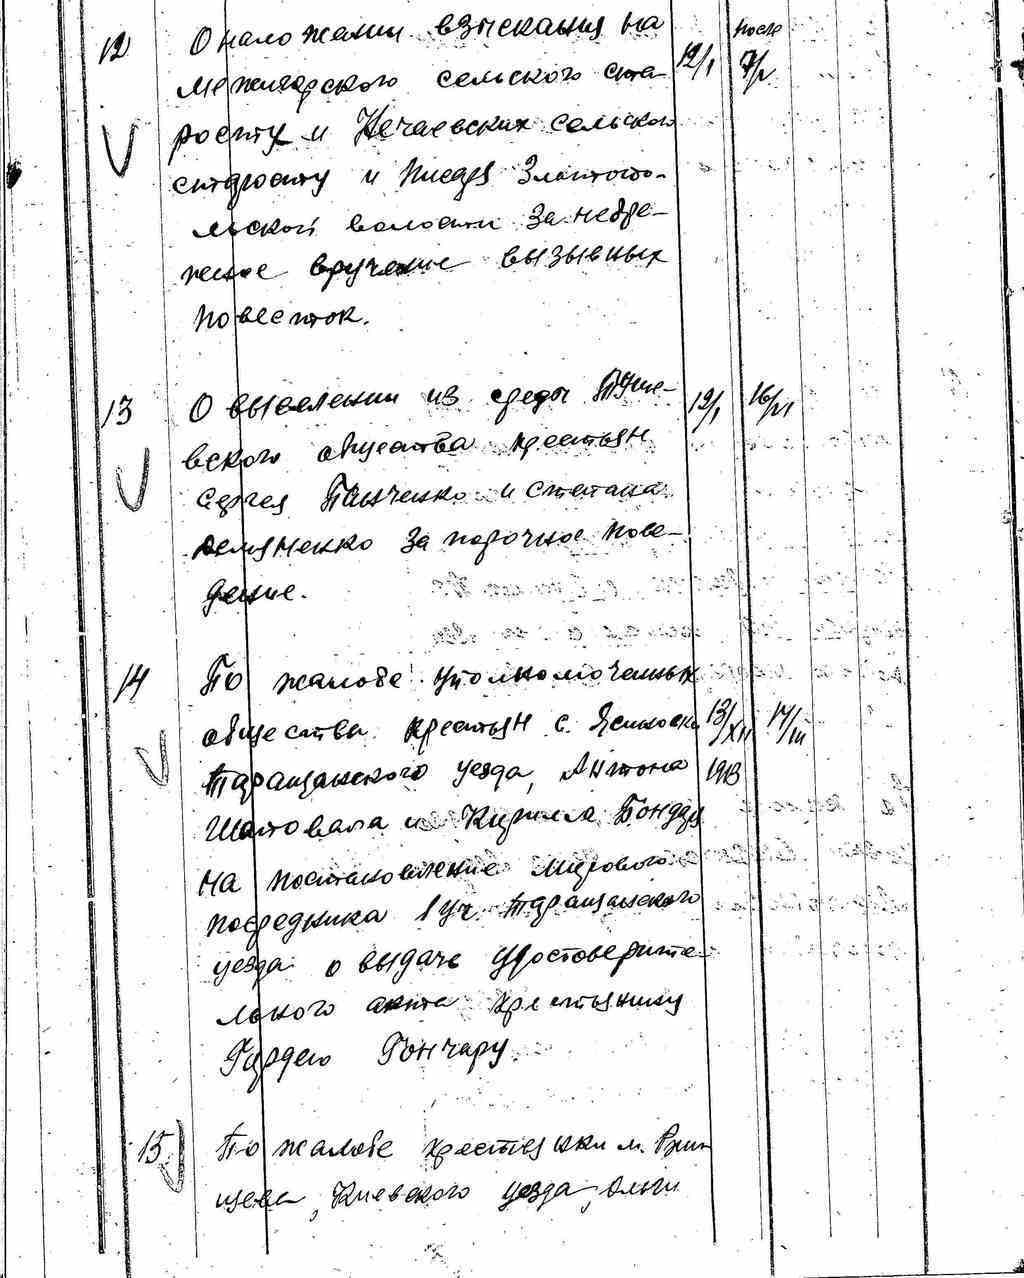 12 О наложении взыскания на 12/I после 7/V
Межигорского сельского ста-
росту и Нечаевских сельского
старосту и писаря Златопо-
льской волости за небре-
жное вручение вызывных
повесток.
13 О выселении из среды 12/I 16/VI
вского общества крестьян
Сергея Панченко и Степана
Демяненко за порочное пове-
дение.
14 По жалобе уполномоченных
общества крестьян с. 13/XII 17/III
Таращанского уезда, Антона 1913
Шаповала и Кирилла Бондаря
на постановление мирового
посредника 1 уч. Таращанского
уезда о выдаче удостоверите-
льного акта крестьянину
Гордею Гончару.
15 По жалобе крестьянки м. Ржи-
щева, Киевского уезда, Ольги